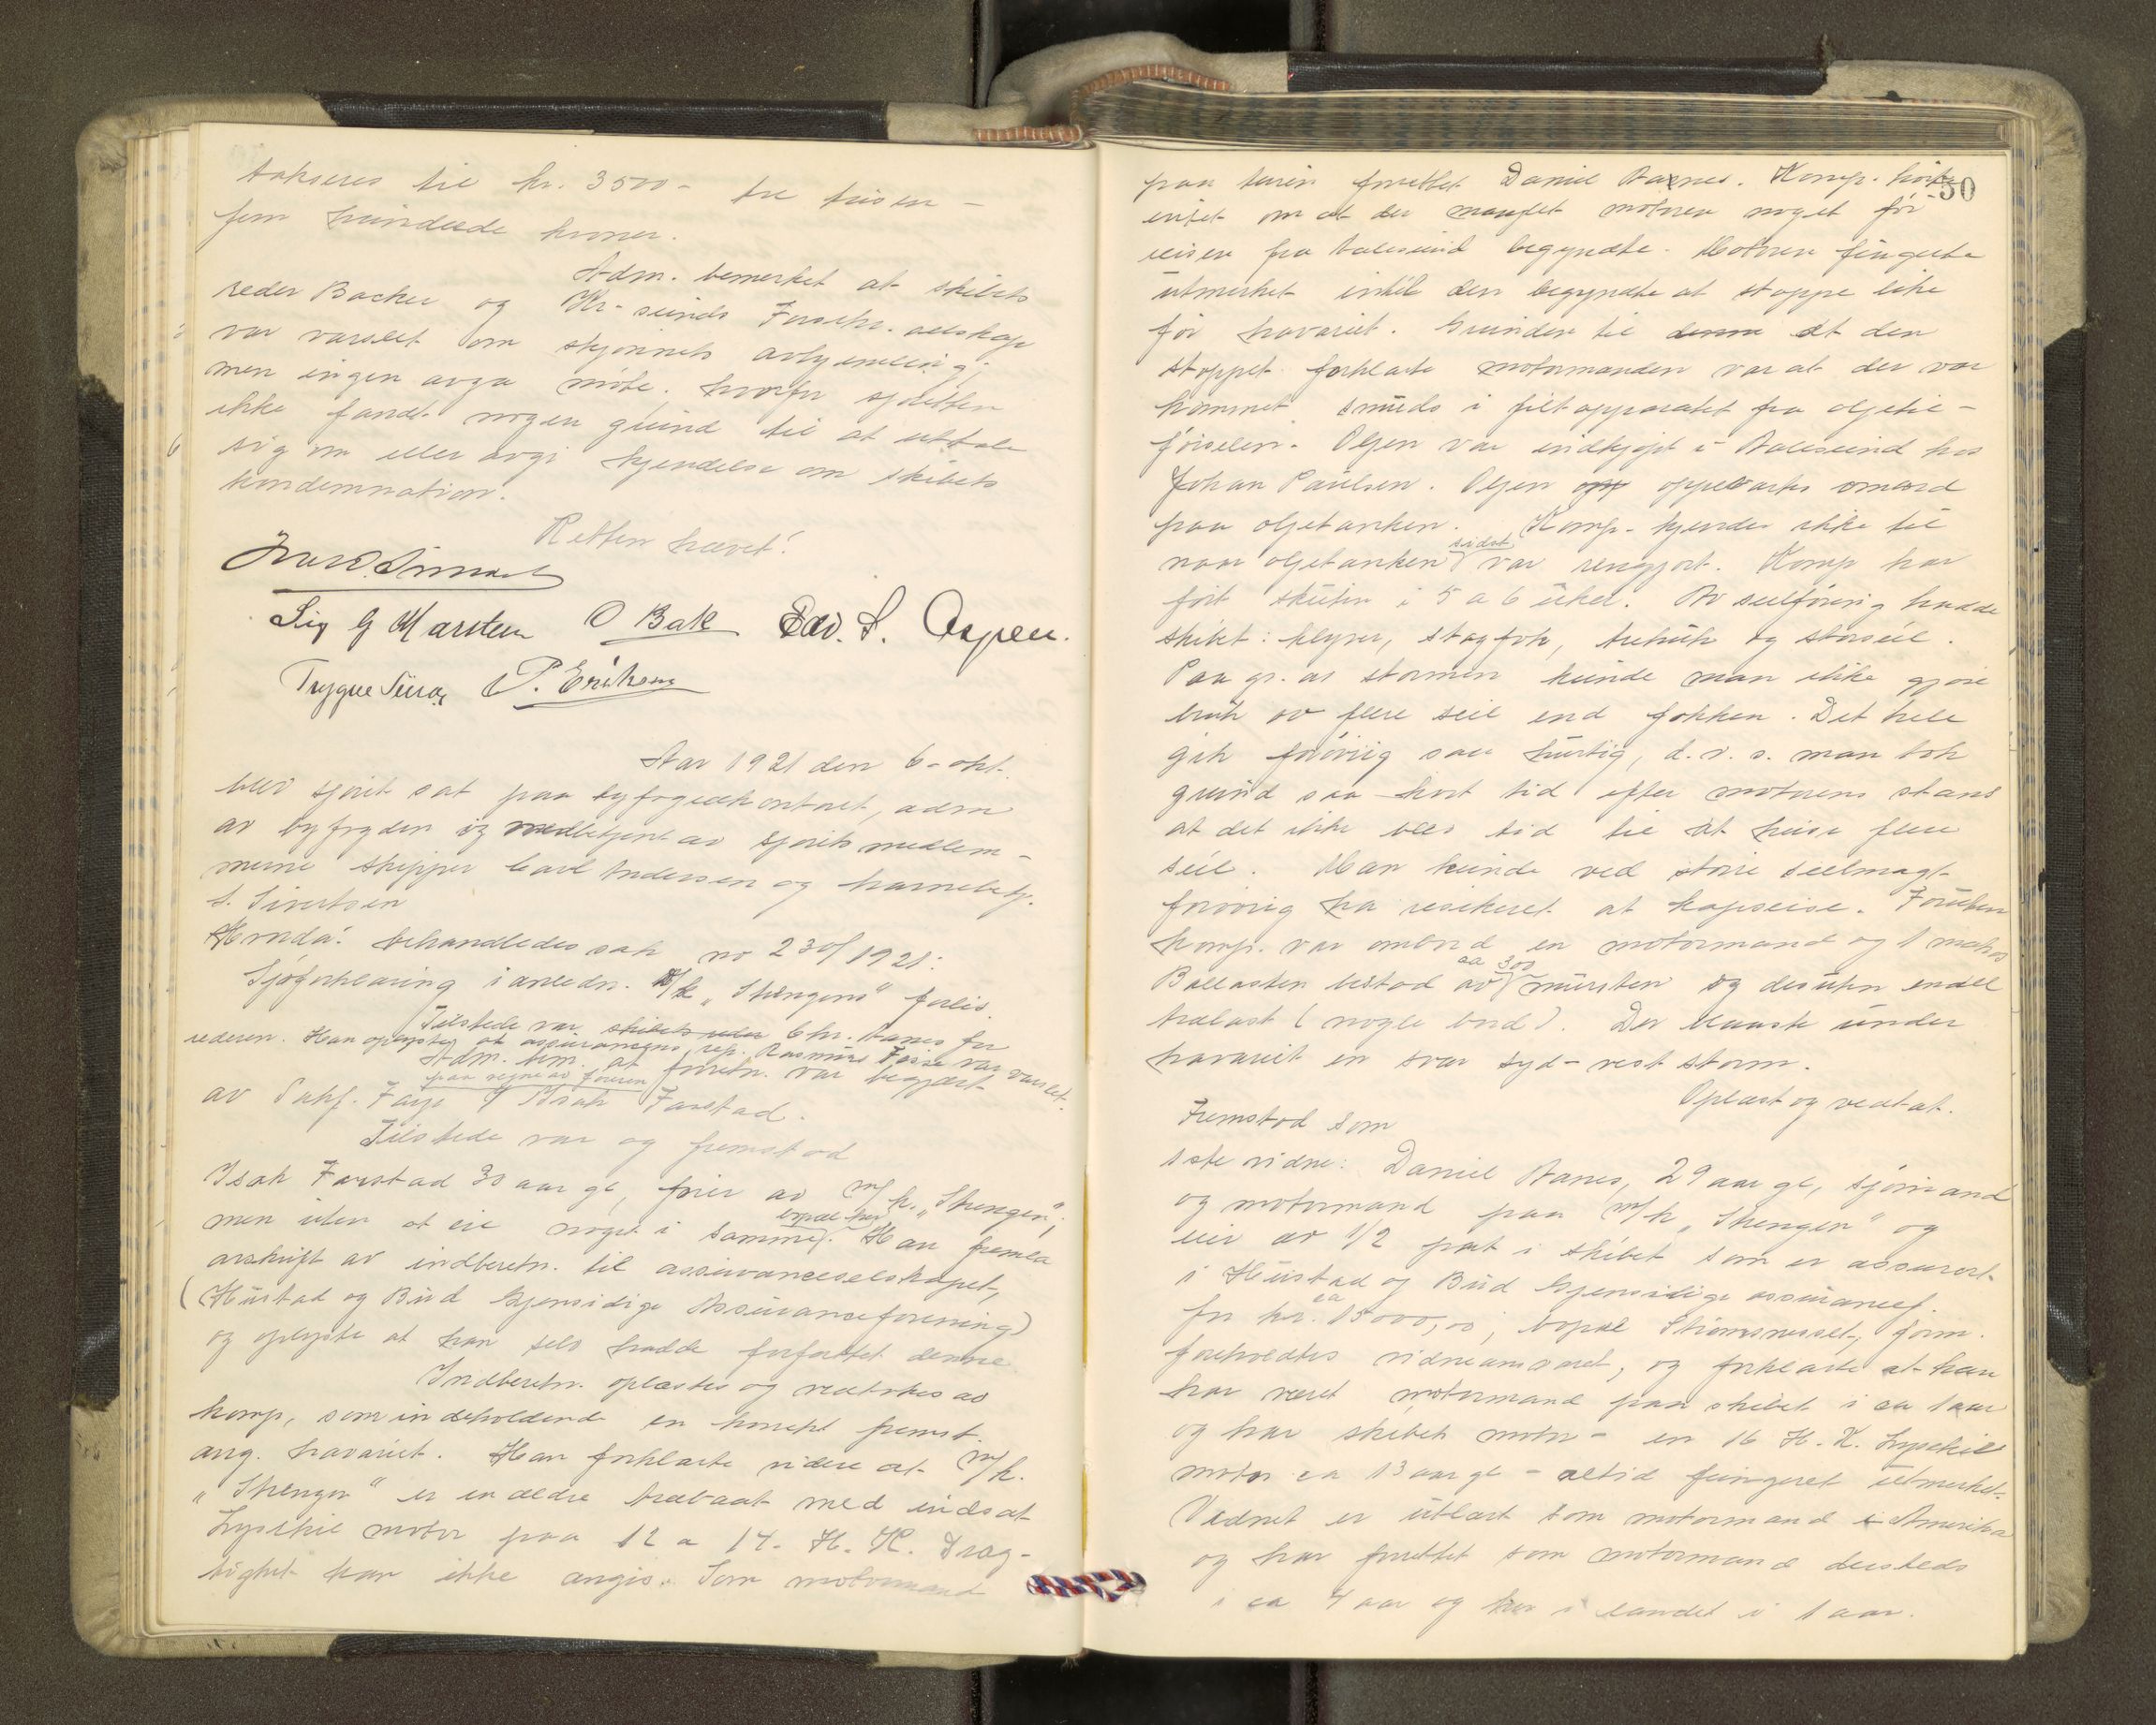 takseres til kr. 3500 - tre tusen -
fem hundrede kroner.
Adm. bemerket at skibets
reder Backer og Kr-sunds Forsikr. selskap
var varslet om skjønnets avhjemling,
men ingen avga møte. hvorfor sjøretten
ikke fandt nogen grund til at uttale
sig om eller avgi kjendelse om skibets
kondemnation.
Retten hævet!
Sig G Marsteen O Bak Edv. S. Aspen.
Trygve P. Eriksen
Aar 1921 den 6- okt.
blev sjøret sat paa byfogedkontoret, adm
av byfogden og medbetjent av sjørets medlem-
merne skipper Carl Andersen og havnebetj.
S. Sivertsen
Hvorda: behandledes sak no 230/1921:
Sjøforklaring i anledn. m/k „Stengens" forlis.
Tilstede var skibets reder Chr. Aanes for
rederen. Han oplyste at assurancens rep. Rasmus Fosse var varslet.
Adm. bem. at forretn. var begjært
paa vegne av føreren
av Sakf. Farsø Isak Farstad.
Tilstede var og fremstod
Isak Farstad 30 aar gl, fører av m/k. „Stengen",
men uten at eie noget i samme, bopæl her. Han fremla
avskrift av indberetn. til assuranceselskapet,
(Hustad og Bud Gjensidige Assuranceforening)
og oplyste at han selv hadde forfattet denne
Indberetn. oplæstes og vedtokes av
komp, som indeholdende en korrekt fremst.
ang. havariet. Han forklarte videre at m/k.
„Stengen" er en ældre trebaat med indsat
Lysekil motor paa 12 a 14. H. K. Dræg-
tighet kan ikke angis. Som motormand
50
paa turen forrettet Daniel Aanes. Komp. hørte
intet om at der manglet motoren noget før
reisen fra Aalesund begyndte. Motoren fungerte
utmerket indtil den begyndte at stoppe like
før havariet. Grunden til denne at den
stoppet forklarte motormanden var at der var
kommet smuds i filtapparatet fra oljetil-
førselen. Oljen var indkjøpt i Aalesund hos
Johan Paulsen. Oljen opp oppevartes ombord
paa oljetanken. Komp. kjender ikke til
naar oljetanken sidst var rengjort. Komp har
ført skuten i 5 a 6 uker. Av seilføring hadde
skibet: klyver, stagfok, trekuk og storseil.
Paa gr. av stormen kunde man ikke gjøre
bruk av flere seil end fokken. Det hele
gik forøvrig saa hurtig, d. v. s. man tok
grund saa kort tid efter motorens stans
at det ikke blev tid til at heise flere
seil. Man kunde ved større seilmagt
forøvrig ha risikeret at kapseise. Foruten
komp. var ombord en motormand og 1 matros
Ballasten bestod av ca 300 mursten og desuten endel
trælast (nogle bord). Der blaaste under
havariet en svær syd-vest storm.
Oplæst og vedtat.
Fremstod som
1ste vidne: Daniel Aanes, 29 aar gl, sjømand
og motormand paa m/k „Stengen" og
eier av 1/2 part i skibet som er assurert
i Hustad og Bud Gjensidige assurancef.
for kr. ca 15000,00, bopæl Strømsnesset, form.
foreholdtes vidneansvaret, og forklarte at han
har været motormand paa skibet i ca 1 aar
og har skibets motor - en 16 H. K. Lysekil
motor ca 13 aar gl - altid fungeret utmerket.
Vidnet er utlært som motormand i Amerika
og har forrettet som motormand dersteds
i ca 4 aar og her i landet i 1 aar.